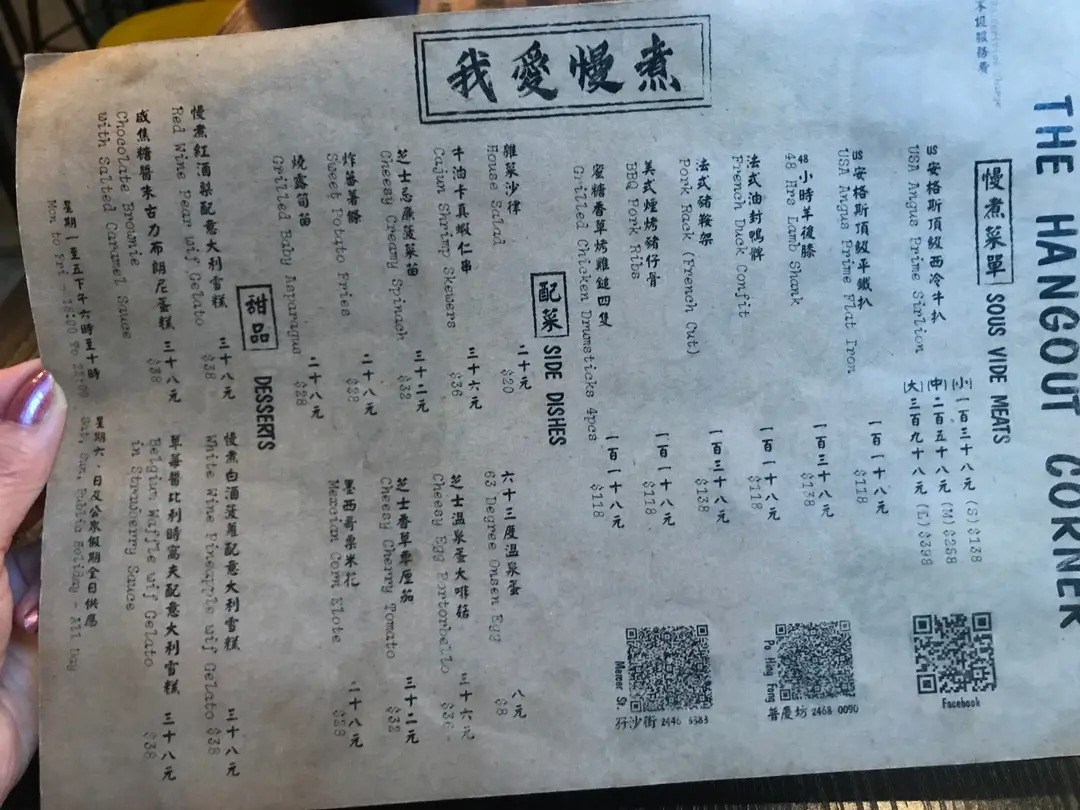 THE HANGOUT CORNER
慢煮菜單 SOUS VIDE MEATS
US安格斯頂級西冷牛扒
USA Angus Prime Sirlion
(小)一百三十八元 (S)$138
(中)二百五十八元 (M)$258
(大)三百九十八元 (L)$398
US安格斯頂級平鐵扒 一百一十八元
USA Angus Prime Flat Iron $118
48小時羊後膝 一百三十八元
48 Hrs Lamb Shank $138
法式油封鴨髀 一百一十八元
French Duck Confit $118
法式豬鞍架 一百三十八元
Pork Rack (French Cut) $138
美式煙烤豬仔骨 一百一十八元
BBQ Pork Ribs $118
蜜糖香草烤雞鎚四隻 一百一十八元
Grilled Chicken Drumsticks 4pcs $118
Facebook
Po Hing Fong
普慶坊 2468 0090
Mercer St.
孖沙街
配菜 SIDE DISHES
雜菜沙律 二十元
House Salad $20
牛油卡真蝦仁串 三十六元
Cajun Shrimp Skewers $36
芝士忌廉菠菜苗 三十二元
Cheesy Creamy Spinach $32
炸蕃薯條 二十八元
Sweet Potato Fries $28
燒露筍苗 二十八元
Grilled Baby Asparagus $28
六十三度溫泉蛋 八元
63 Degree Onsen Egg $8
芝士溫泉蛋大啡菇 三十六元
Cheesy Egg Portorbello
芝士香草車厘茄 三十二元
Cheesy Cherry Tomato $32
墨西哥粟米花 二十八元
Mexcian Corn Elote $28
甜品 DESSERTS
慢煮紅酒梨配意大利雪糕 三十八元
Red Wine Pear wif Gelato $38
咸焦糖醬朱古力布朗尼蛋糕 三十八元
Chocolate Brownie $38
with Salted Caramel Sauce
慢煮白酒菠蘿配意大利雪糕 三十八元
White Wine Pineapple wif Gelato $38
草莓醬比利時窩夫配意大利雪糕 三十八元
Belgium Waffle wif Gelato $38
in Strawberry Sauce
星期一至五下午六時至十時
Mon to Fri - 18:00 To 22:00
星期六,日及公眾假期全日供應
Sat, Sun, Public Holiday - All Day
我愛慢煮